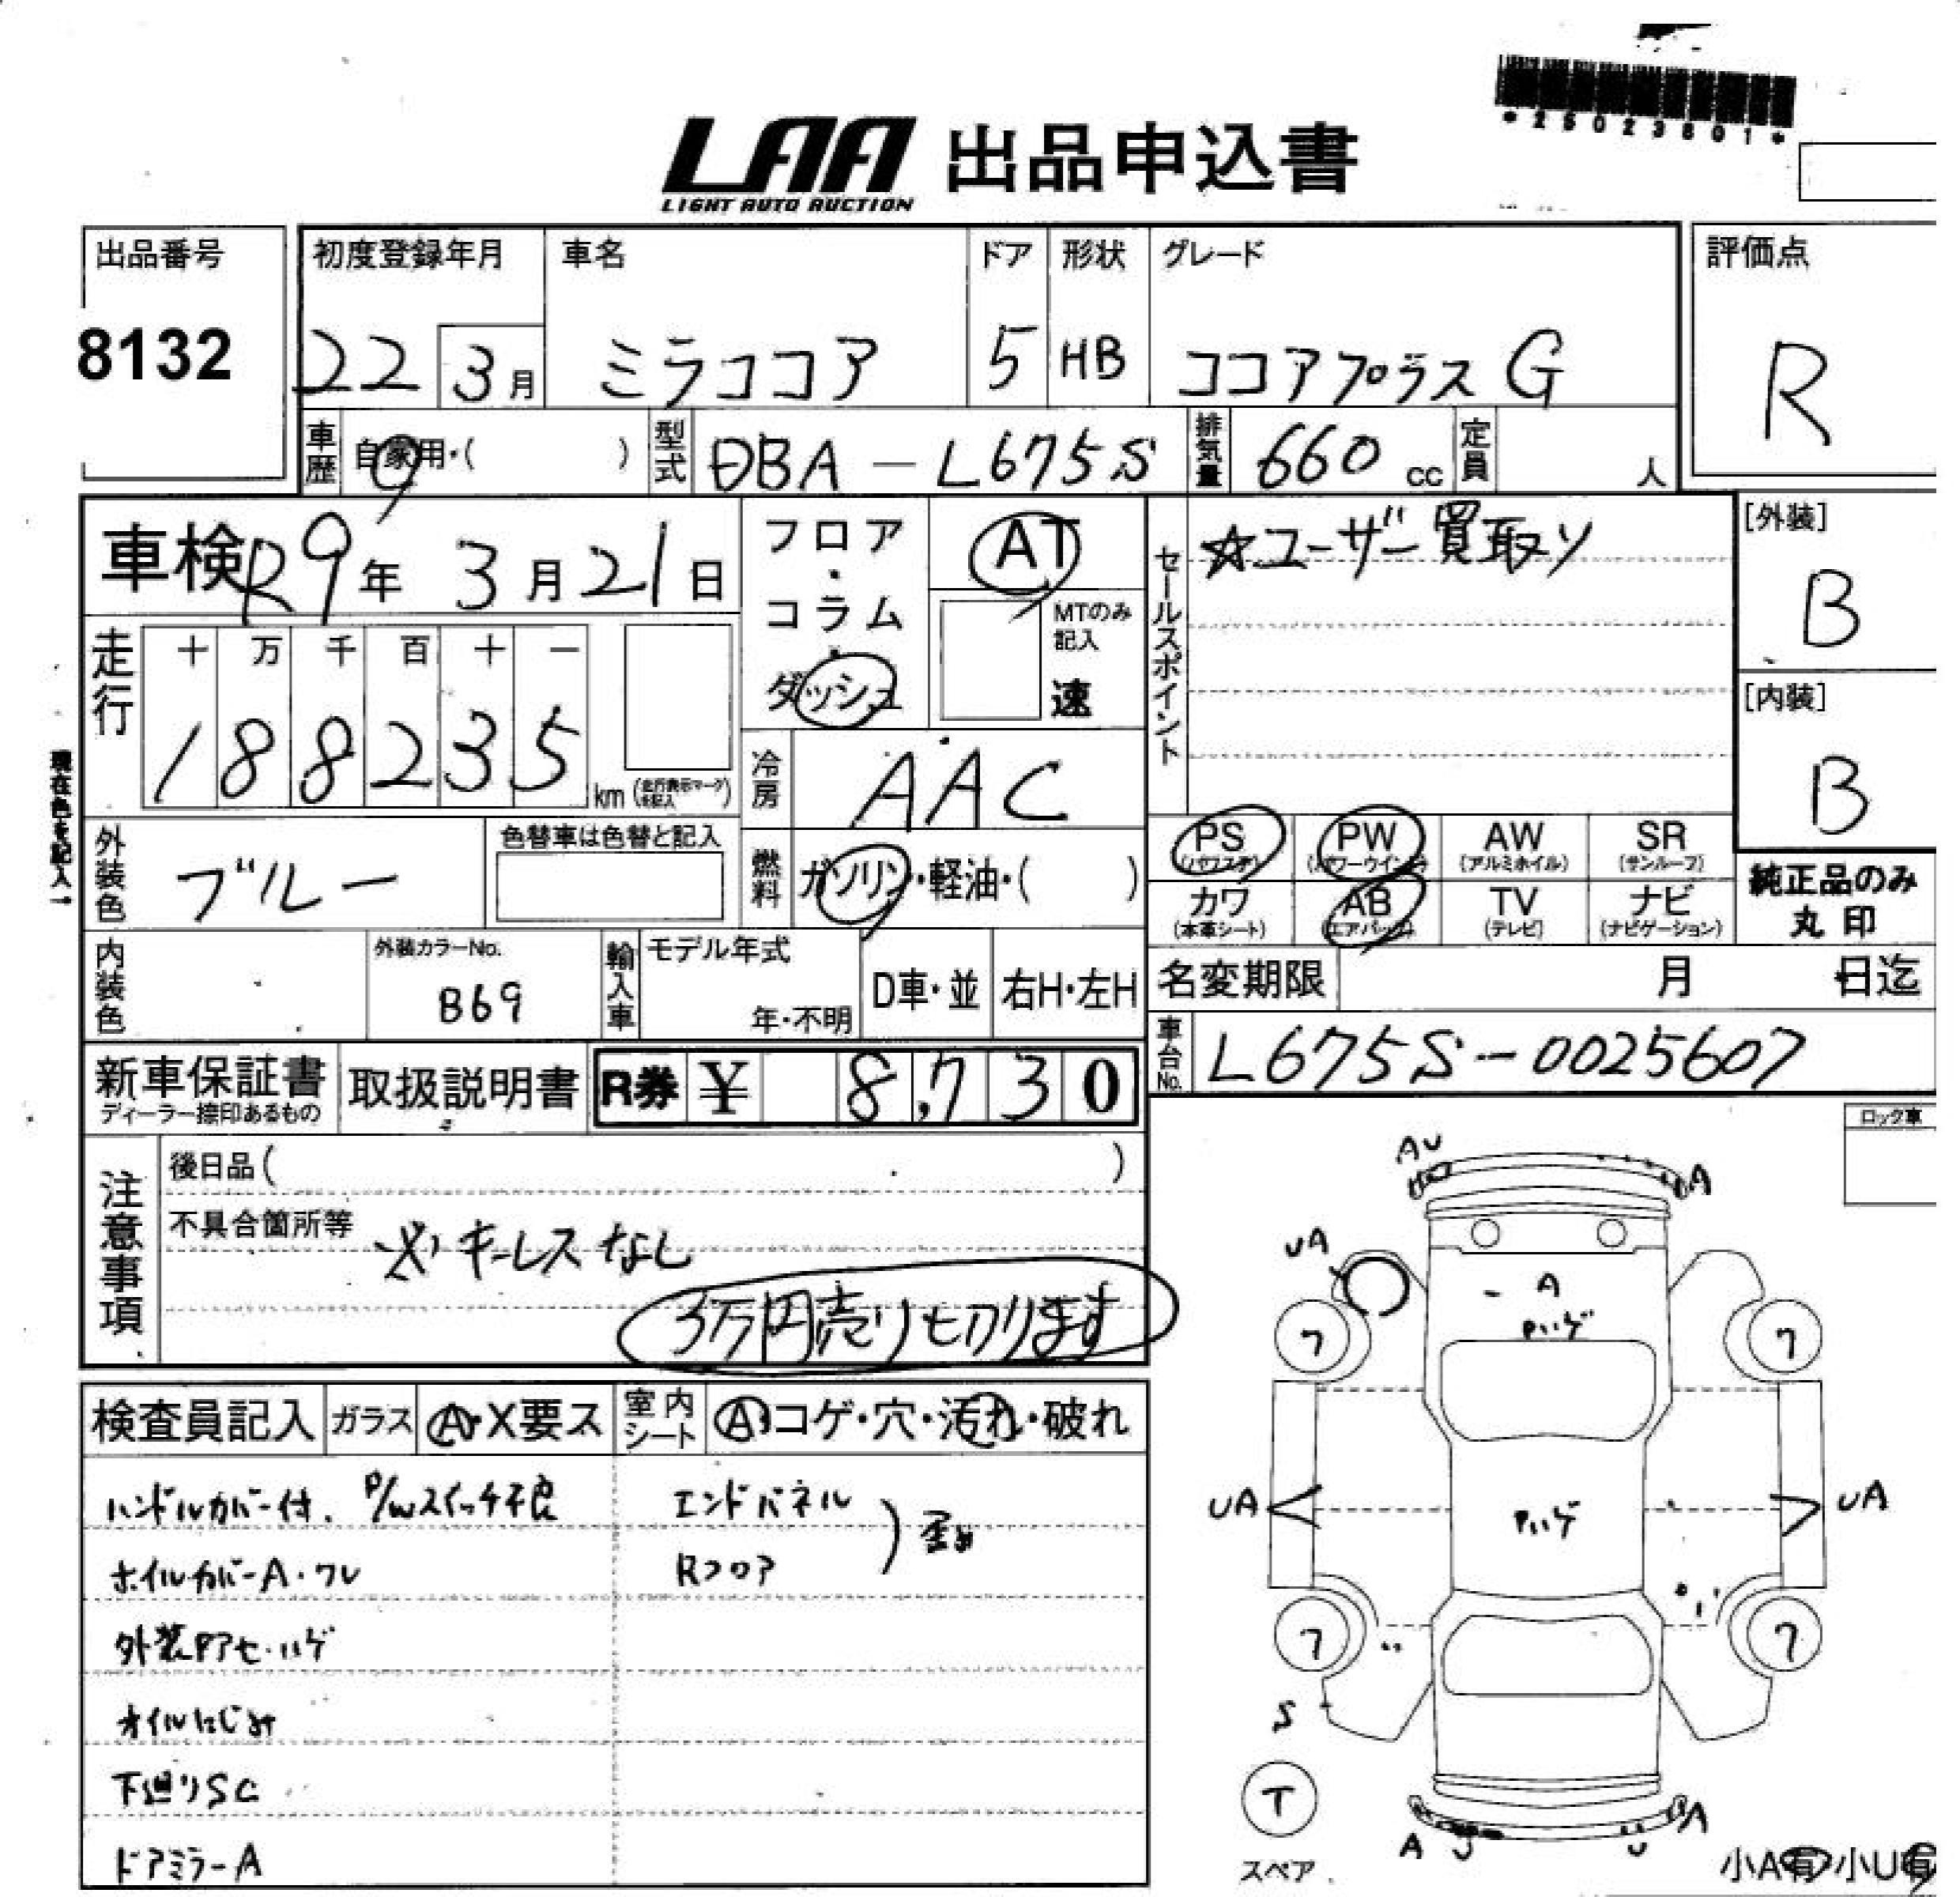 *25023801*
LAA 出品申込書
LIGHT AUTO AUCTION
出品番号
8132
初度登録年月
22 3月
車名
ミラココア
ドア
5
形状
HB
グレード
ココアプラスG
評価点
R
車歴 自家用・( )
型式 DBA-L675S
排気量 660cc
定員 人
車検 R9年 3月21日
フロア・コラム・ダッシュ
AT
MTのみ記入
速
セールスポイント
☆ユーザー買取り
[外装]
B
[内装]
B
走行
十 万 千 百 十 一
1 8 8 2 3 5 km
(走行表示マークを記入)
現在色を記入→
冷房 AAC
外装色 ブルー
色替車は色替と記入
燃料 ガソリン・軽油・( )
PS (パワステ)
PW (パワーウインド)
AW (アルミホイル)
SR (サンルーフ)
カワ (本革シート)
AB (エアバック)
TV (テレビ)
ナビ (ナビゲーション)
純正品のみ
丸印
内装色
外装カラーNo.
B69
輸入車
モデル年式
年・不明
D車・並
右H・左H
名変期限 月 日迄
車台No. L675S-0025607
新車保証書
ディーラー捺印あるもの
取扱説明書
R券 ¥ 8,730
注意事項
後日品( )
不具合箇所等
キーレスなし
3万円売り切ります
ロック車
検査員記入
ガラス A・X要ス
室内シート A・コゲ・穴・汚れ・破れ
ハンドルカバー付. P/Wスイッチ不良
エンドパネル
ホイルカバーA・ワレ
Rフロア
外装Pアセ・ハゲ
オイルにじみ
下廻りSC
ドアミラーA
AU
A
UA
A
Pハゲ
7
7
UA
Pハゲ
UA
7
7
S
T
スペア
A
U
U
A
小A有・小U有